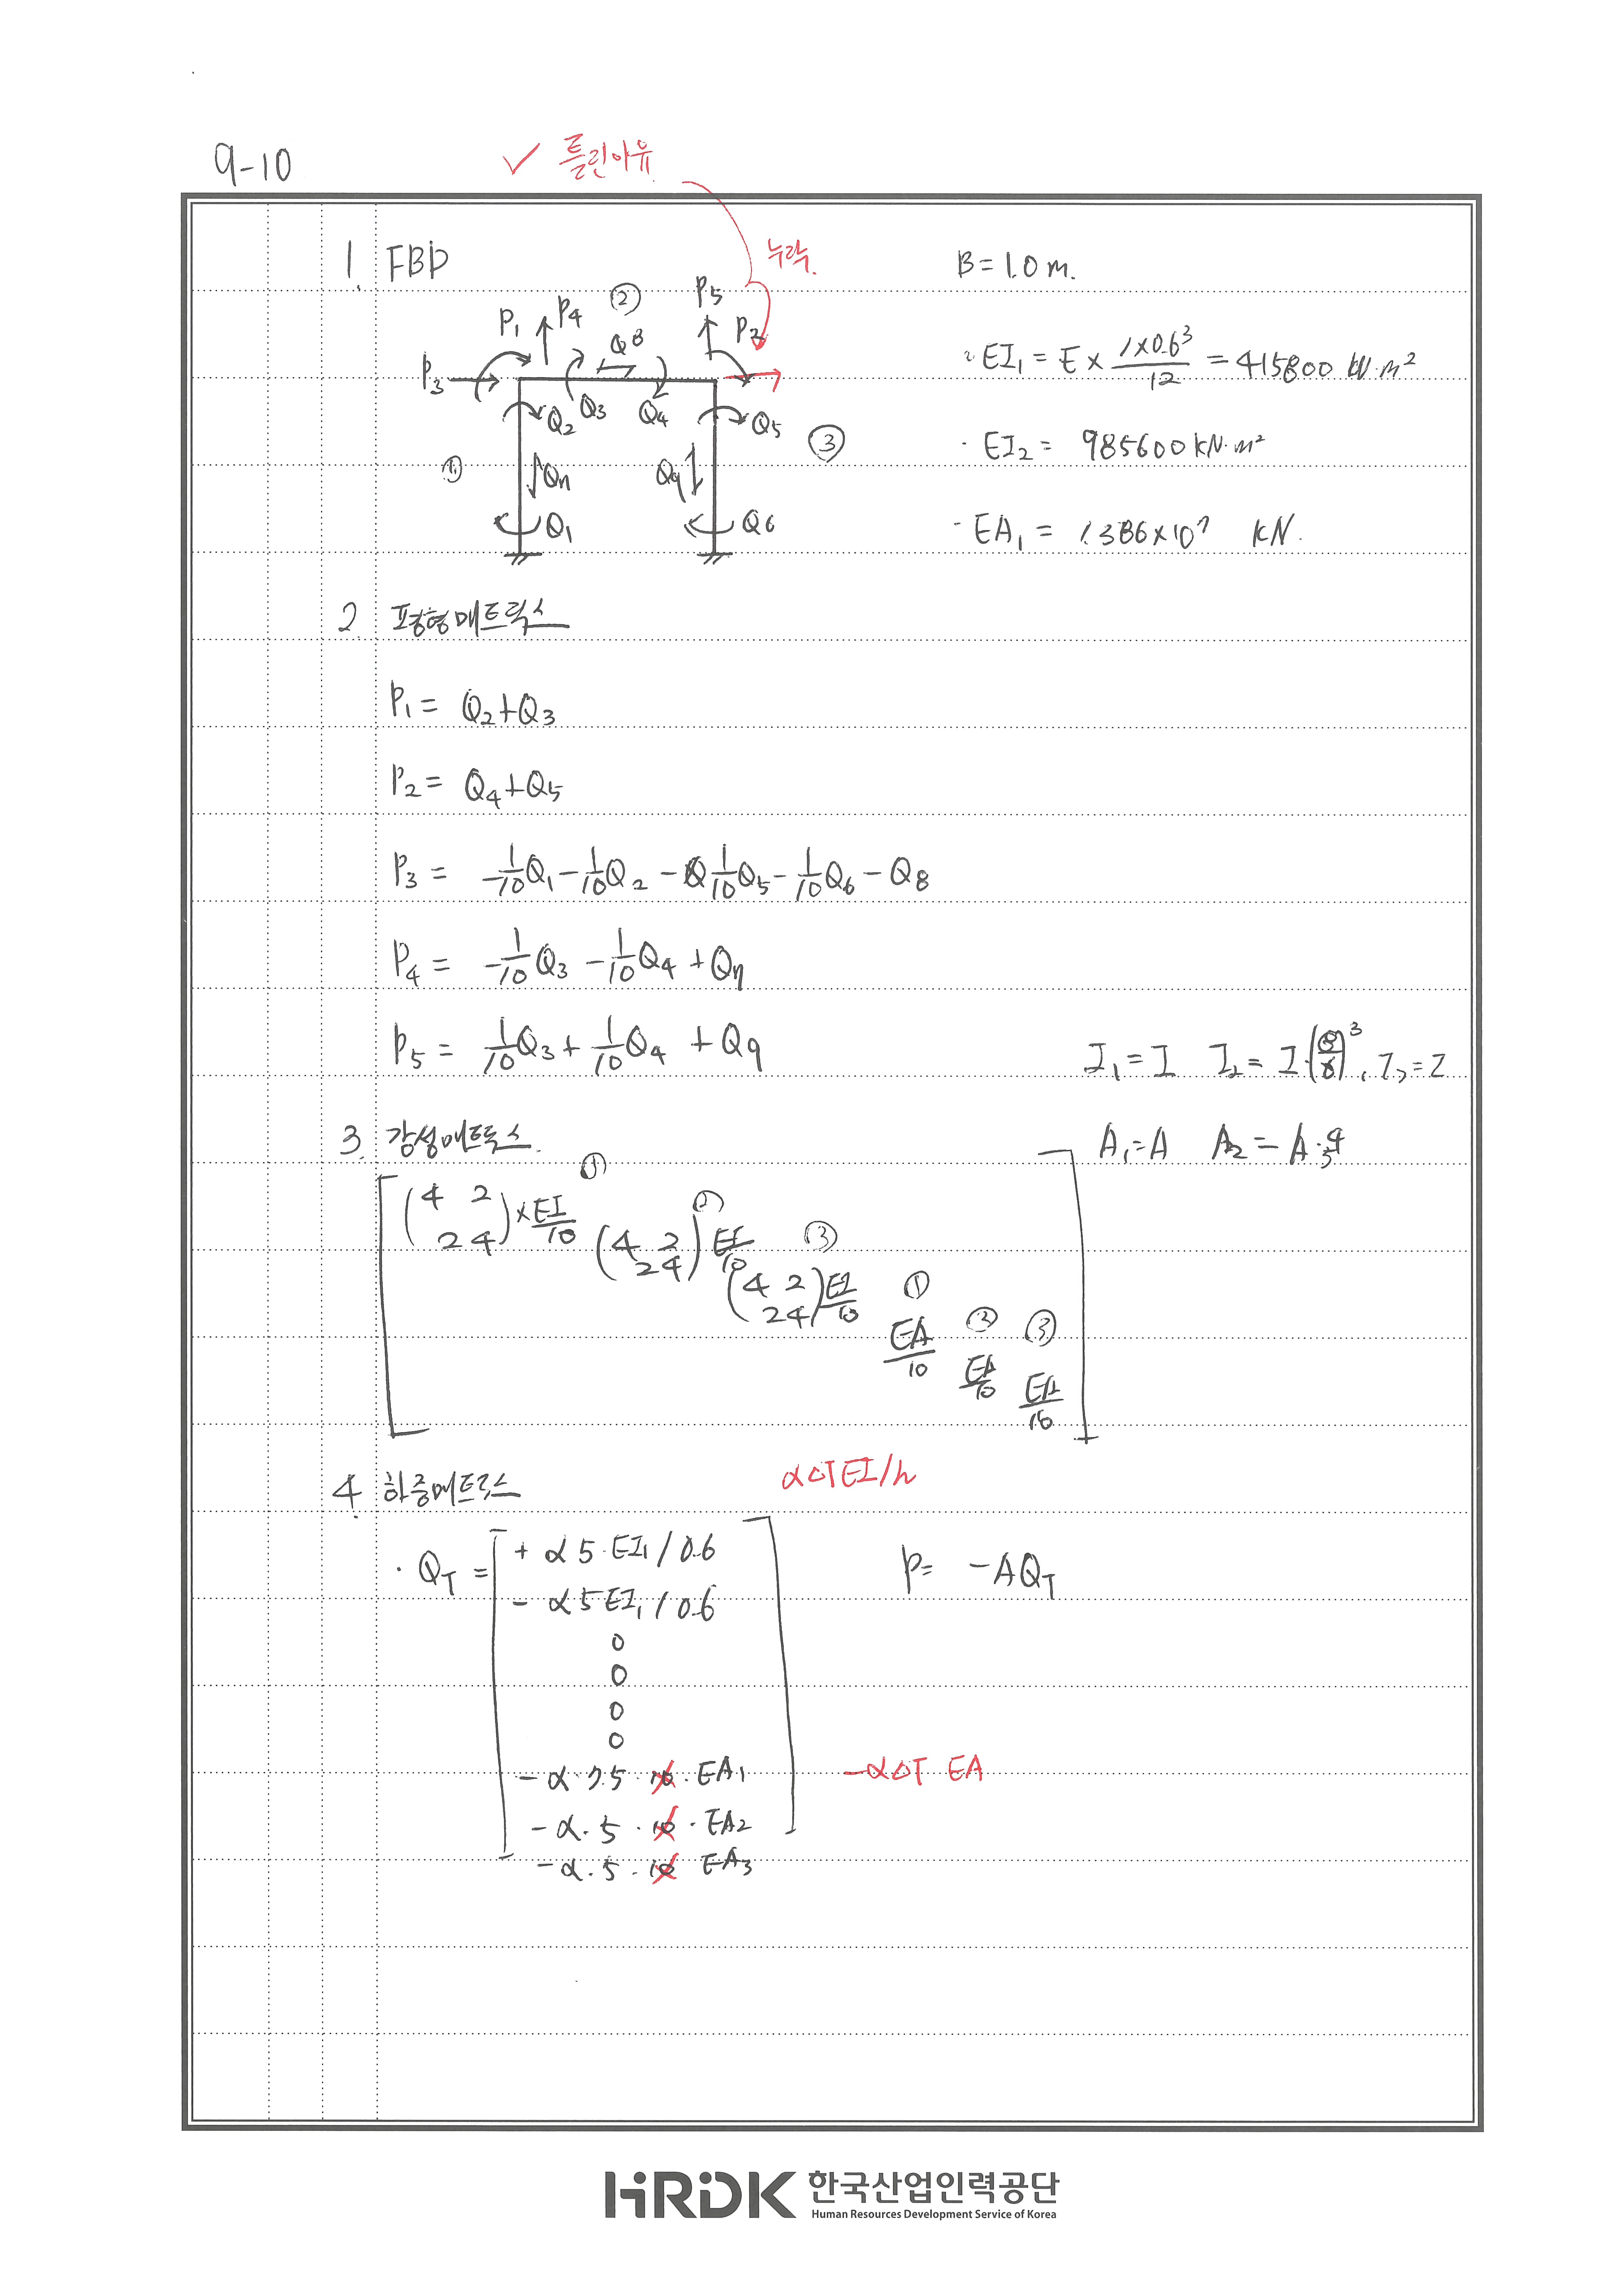 9-10
✓ 틀린이유
누락.
1. FBD
B = 1.0 m.
P1 P4 ② P5 P2
P3 Q8
Q2 Q3 Q4 Q5
① Q7 Q9 ③
Q1 Q6
EI1 = E × 1×0.6³/12 = 415800 kN·m²
· EI2 = 985600 kN·m²
· EA1 = 1.386×10⁷ kN.
2. 평형매트릭스
P1 = Q2+Q3
P2 = Q4+Q5
P3 = -1/10 Q1 - 1/10 Q2 - 1/10 Q5 - 1/10 Q6 - Q8
P4 = -1/10 Q3 - 1/10 Q4 + Q7
P5 = 1/10 Q3 + 1/10 Q4 + Q9
I1 = I I2 = I·(8/6)³, I3 = I
3. 강성매트릭스.
A1 = A A2 = A·4/3
① (4 2 2 4) × EI/10
② (4 2 2 4) EI/10
③ (4 2 2 4) EI/10
① EA/10
② EA/10
③ EA/10
4. 하중매트릭스
αΔT EI/h
· QT =
+ α 5·EI1 / 0.6
- α 5 EI1 / 0.6
0
0
0
0
- α·7.5·10·EA1
- α·5·10·EA2
- α·5·10 EA3
P = -AQT
-αΔT EA
HRDK 한국산업인력공단
Human Resources Development Service of Korea